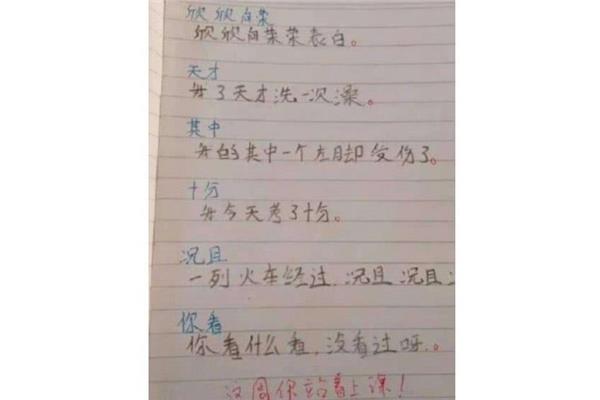 欣欣向荣
欣欣向荣荣表白。
天才
我3天才洗一次澡。
其中
我的其中一个左脚受伤了。
十分
我今天考了十分。
况且
一列火车经过,况且况且
你看
你看什么看,没看过呀。
这周你站着上课!